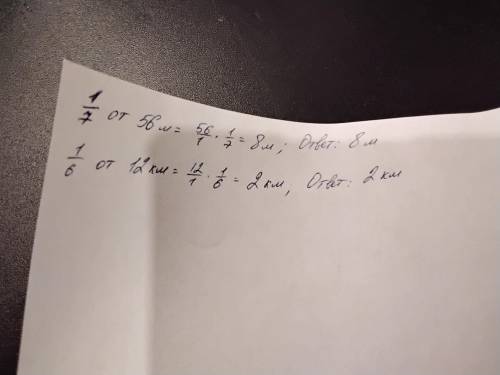 1/7 от 56 м = 56/1 · 1/7 = 8 м; Ответ: 8 м
1/6 от 12 км = 12/1 · 1/6 = 2 км, Ответ: 2 км